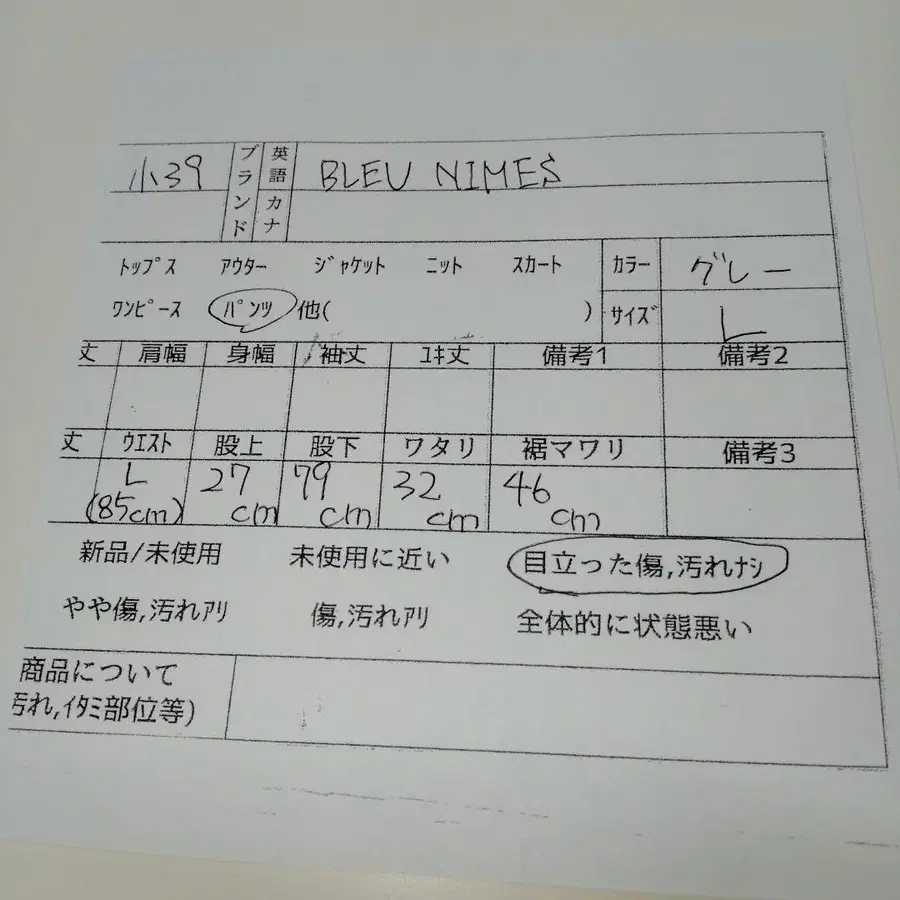 小39 ブランド 英語 BLEU NIMES
カナ
トップス アウター ジャケット ニット スカート カラー グレー
ワンピース パンツ 他( ) サイズ L
丈 肩幅 身幅 袖丈 ユキ丈 備考1 備考2
丈 ウエスト 股上 股下 ワタリ 裾マワリ 備考3
L 27 79 32 46
(85cm) cm cm cm cm
新品/未使用 未使用に近い 目立った傷,汚れナシ
やや傷,汚れアリ 傷,汚れアリ 全体的に状態悪い
商品について
汚れ,イタミ部位等)